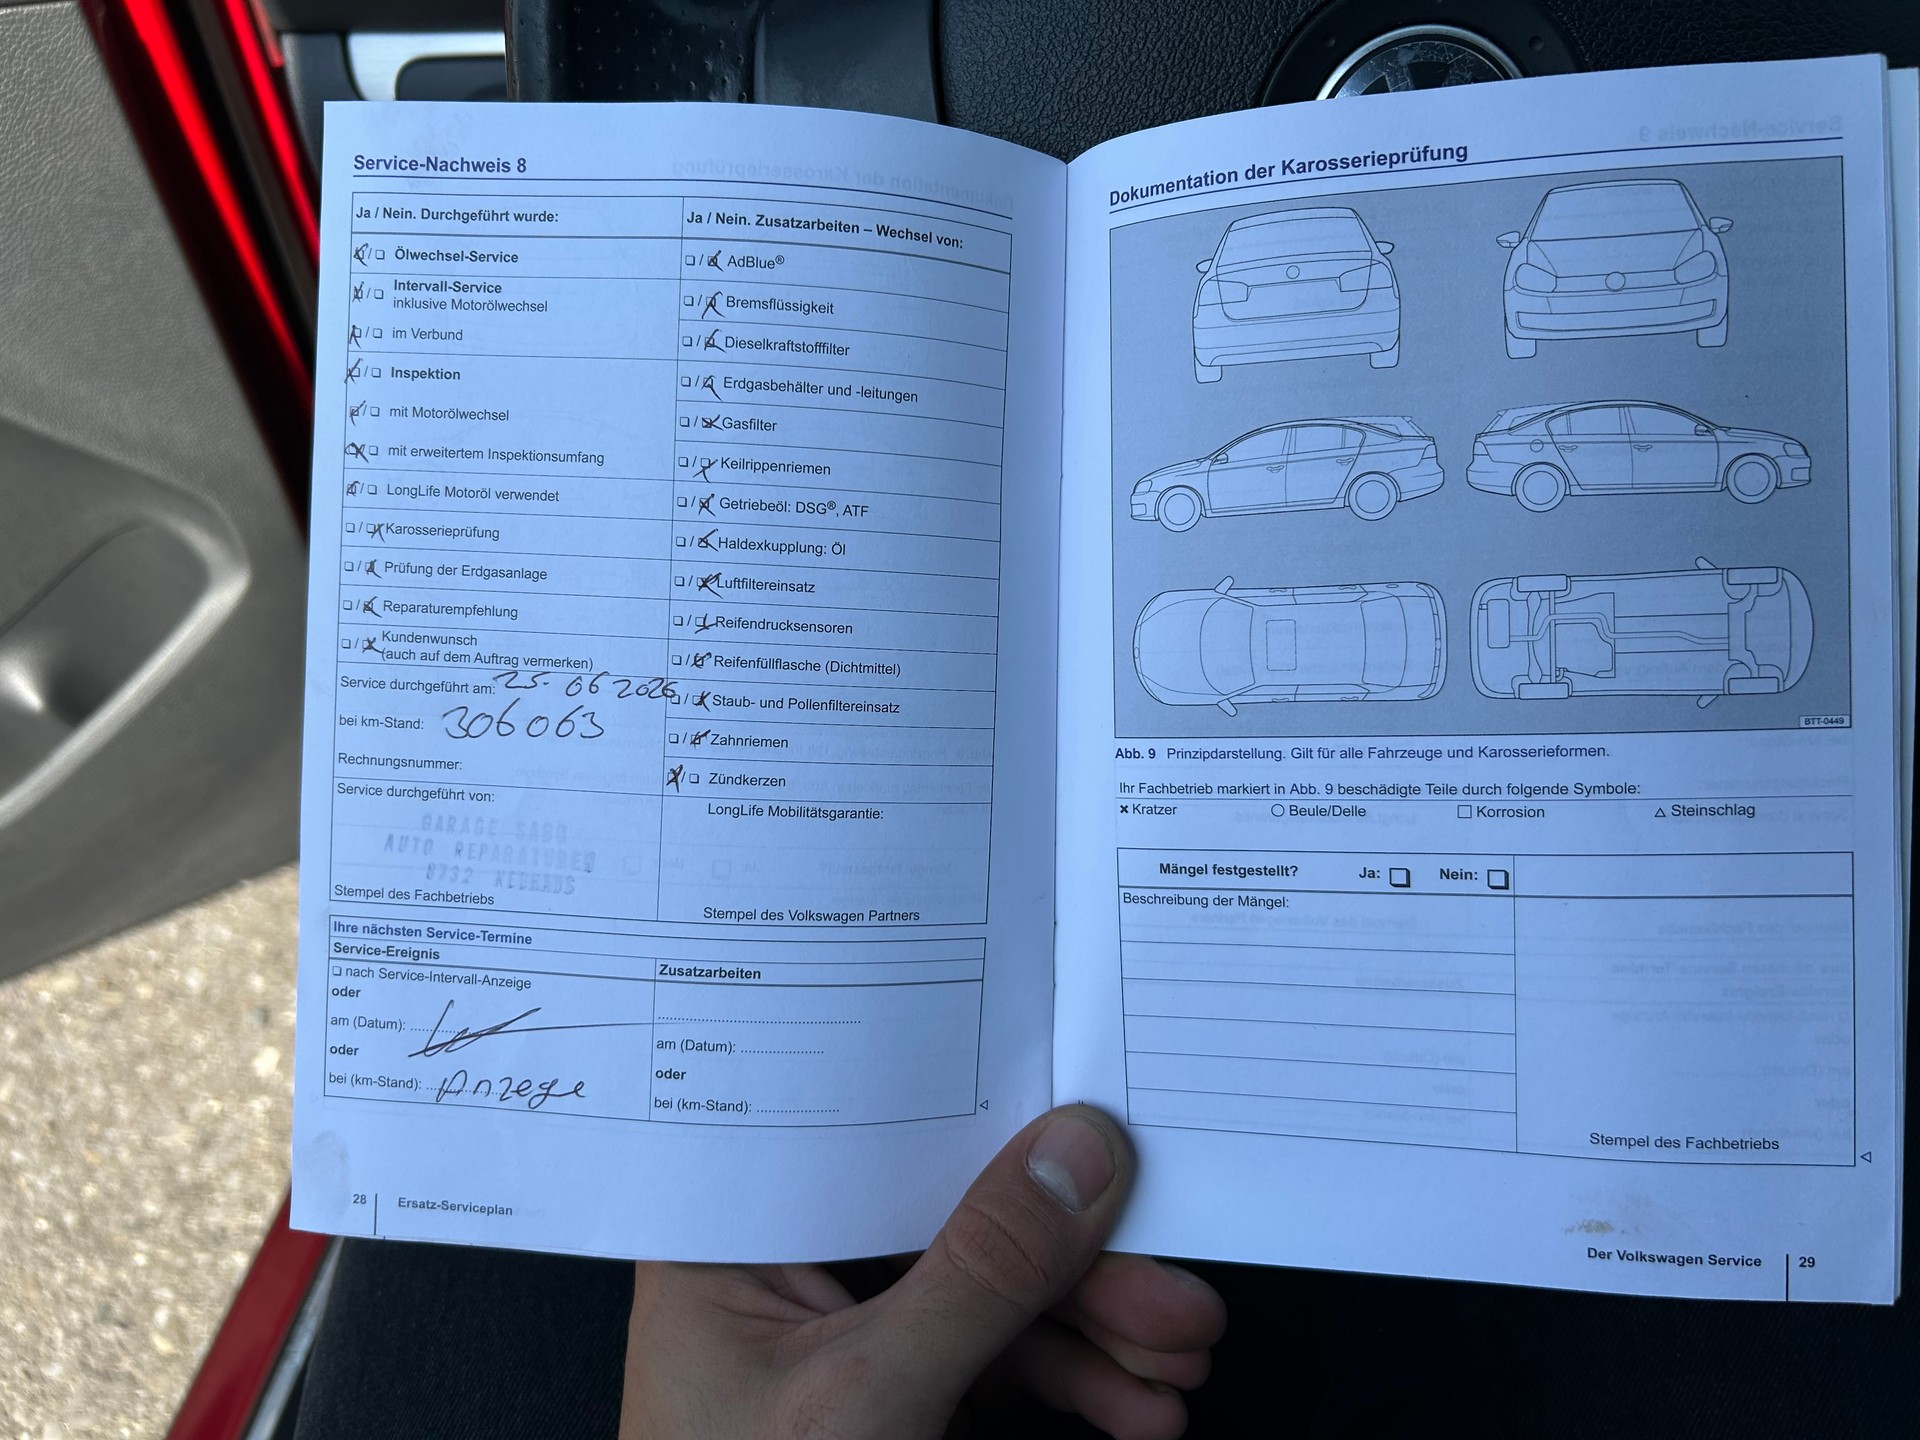 Service-Nachweis 8
Ja / Nein. Durchgeführt wurde:
☒/❏ Ölwechsel-Service
☒/❏ Intervall-Service
inklusive Motorölwechsel
☒/❏ im Verbund
☒/❏ Inspektion
☒/❏ mit Motorölwechsel
☒/❏ mit erweitertem Inspektionsumfang
☒/❏ LongLife Motoröl verwendet
❏/☒ Karosserieprüfung
❏/☒ Prüfung der Erdgasanlage
❏/☒ Reparaturempfehlung
❏/☒ Kundenwunsch
(auch auf dem Auftrag vermerken)
Service durchgeführt am: 25. 06 2026
bei km-Stand: 306063
Rechnungsnummer:
Service durchgeführt von:
GARAGE SABO
AUTO REPARATUREN
8732 NEUHAUS
Stempel des Fachbetriebs
Ja / Nein. Zusatzarbeiten – Wechsel von:
❏/☒ AdBlue®
❏/☒ Bremsflüssigkeit
❏/☒ Dieselkraftstofffilter
❏/☒ Erdgasbehälter und -leitungen
❏/☒ Gasfilter
❏/☒ Keilrippenriemen
❏/☒ Getriebeöl: DSG®, ATF
❏/☒ Haldexkupplung: Öl
❏/☒ Luftfiltereinsatz
❏/☒ Reifendrucksensoren
❏/☒ Reifenfüllflasche (Dichtmittel)
❏/☒ Staub- und Pollenfiltereinsatz
❏/☒ Zahnriemen
☒/❏ Zündkerzen
LongLife Mobilitätsgarantie:
Stempel des Volkswagen Partners
Ihre nächsten Service-Termine
Service-Ereignis
❏ nach Service-Intervall-Anzeige
oder
am (Datum):
oder
bei (km-Stand): Anzege
Zusatzarbeiten
am (Datum):
oder
bei (km-Stand):
28
Ersatz-Serviceplan
Dokumentation der Karosserieprüfung
BTT-0449
Abb. 9 Prinzipdarstellung. Gilt für alle Fahrzeuge und Karosserieformen.
Ihr Fachbetrieb markiert in Abb. 9 beschädigte Teile durch folgende Symbole:
× Kratzer ○ Beule/Delle □ Korrosion △ Steinschlag
Mängel festgestellt? Ja: ❏ Nein: ❏
Beschreibung der Mängel:
Stempel des Fachbetriebs
Der Volkswagen Service
29